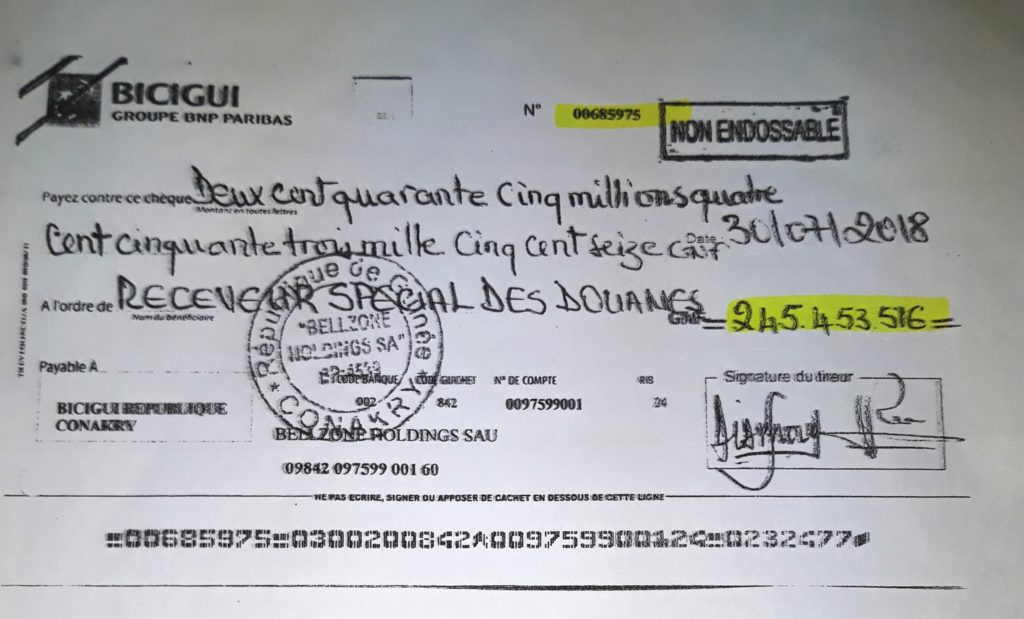 BICIGUI
GROUPE BNP PARIBAS
N° 00685975
NON ENDOSSABLE
Payez contre ce chèque Deux cent quarante Cinq millions quatre
Montant en toutes lettres
Cent cinquante trois mille Cinq Cent seize GNF
Date 30/07/2018
A l'ordre de RECEVEUR SPECIAL DES DOUANES
Nom du bénéficiaire
GNF =245.453.516=
République de Guinée
"BELLZONE
HOLDINGS SA"
★ CONAKRY ★
Payable À
BICIGUI REPUBLIQUE
CONAKRY
CODE BANQUE CODE GUICHET N° DE COMPTE RIB
002 842 0097599001 24
BELLZONE HOLDINGS SAU
09842 097599 001 60
Signature du tireur
NE PAS ECRIRE, SIGNER OU APPOSER DE CACHET EN DESSOUS DE CETTE LIGNE
⑈00685975⑈0300200842A009759900124⑈0232477⑈